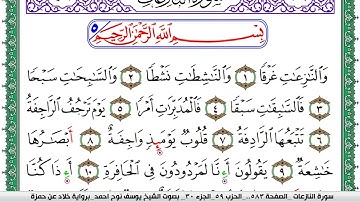 بِسْمِ اللَّهِ الرَّحْمَٰنِ الرَّحِيمِ
وَالنَّٰزِعَٰتِ غَرْقًا ١ وَالنَّٰشِطَٰتِ نَشْطًا ٢ وَالسَّٰبِحَٰتِ سَبْحًا
٣ فَالسَّٰبِقَٰتِ سَبْقًا ٤ فَالْمُدَبِّرَٰتِ أَمْرًا ٥ يَوْمَ تَرْجُفُ الرَّاجِفَةُ
٦ تَتْبَعُهَا الرَّادِفَةُ ٧ قُلُوبٌ يَوْمَئِذٍ وَاجِفَةٌ ٨ أَبْصَٰرُهَا
خَٰشِعَةٌ ٩ يَقُولُونَ أَءِنَّا لَمَرْدُودُونَ فِي الْحَافِرَةِ ١٠ أَءِذَا كُنَّا
سورة النازعات _ الصفحة ٥٨٣ .. الحزب ٥٩ _ الجزء ٣٠ _ بصوت الشيخ يوسف نوح احمد _ برواية خلاد عن حمزة